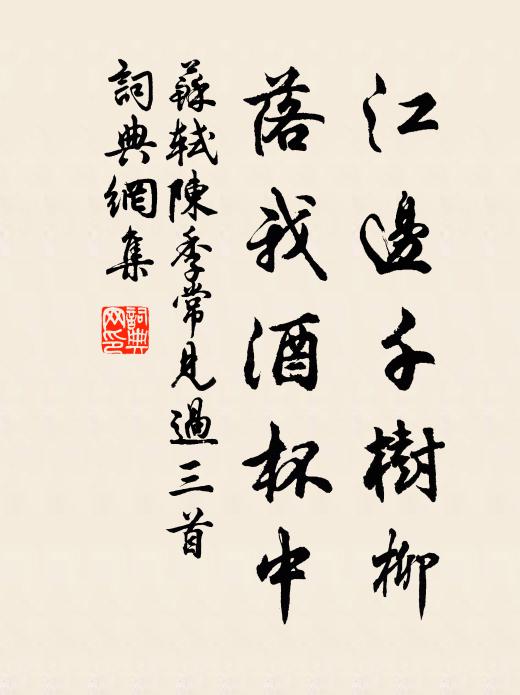 江邊千樹柳
落我酒杯中
蘇軾陳季常見過三首
詞典網集
詞典网印